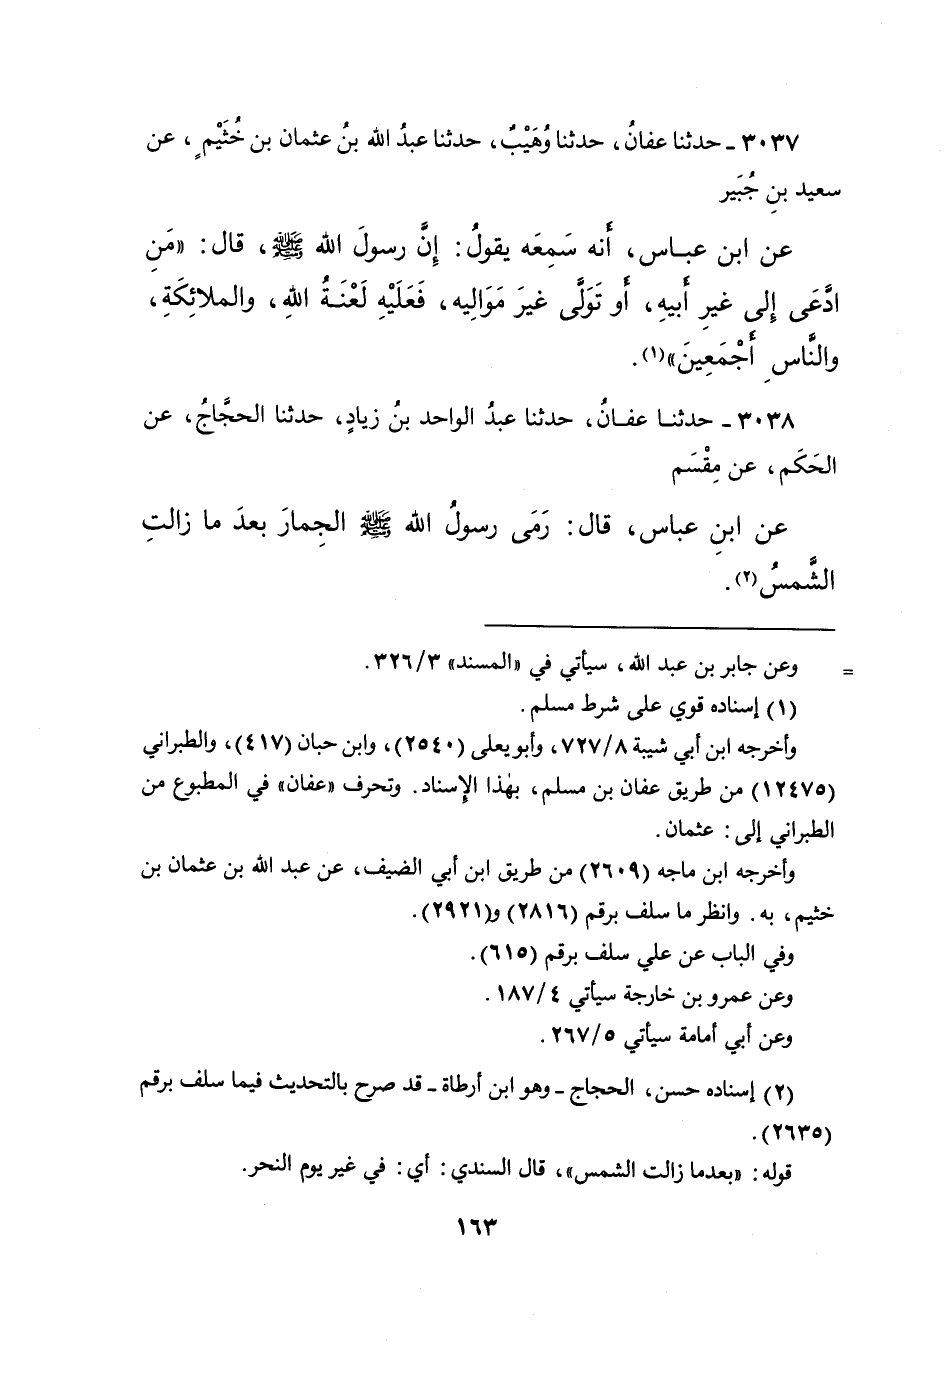 ٣٠٣٧ ـ حدثنا عفانُ، حدثنا وُهَيْبٌ، حدثنا عبدُ الله بنُ عثمان بن خُثَيْمٍ، عن
سعيد بنِ جُبَير
عن ابن عباس، أَنه سَمِعَه يقولُ: إِنَّ رسولَ الله ﷺ، قال: «مَنِ
ادَّعَى إِلى غيرِ أَبيهِ، أَو تَوَلَّى غيرَ مَوَاليه، فَعَلَيْهِ لَعْنَةُ اللهِ، والملائِكَةِ،
والنَّاسِ أَجْمَعِينَ»(١).
٣٠٣٨ ـ حدثنا عفانُ، حدثنا عبدُ الواحد بنُ زيادٍ، حدثنا الحجَّاجُ، عن
الحَكَم، عن مِقْسَم
عن ابنِ عباس، قال: رَمَى رسولُ الله ﷺ الجِمارَ بعدَ ما زالتِ
الشَّمسُ(٢).
= وعن جابر بن عبد الله، سيأتي في «المسند» ٣٢٦/٣.
(١) إسناده قوي على شرط مسلم.
وأخرجه ابن أبي شيبة ٧٢٧/٨، وأبو يعلى (٢٥٤٠)، وابن حبان (٤١٧)، والطبراني
(١٢٤٧٥) من طريق عفان بن مسلم، بهٰذا الإسناد. وتحرف «عفان» في المطبوع من
الطبراني إلى: عثمان.
وأخرجه ابن ماجه (٢٦٠٩) من طريق ابن أبي الضيف، عن عبد الله بن عثمان بن
خثيم، به. وانظر ما سلف برقم (٢٨١٦) و(٢٩٢١).
وفي الباب عن علي سلف برقم (٦١٥).
وعن عمرو بن خارجة سيأتي ١٨٧/٤.
وعن أبي أمامة سيأتي ٢٦٧/٥.
(٢) إسناده حسن، الحجاج ـ وهو ابن أرطاة ـ قد صرح بالتحديث فيما سلف برقم
(٢٦٣٥).
قوله: «بعدما زالت الشمس»، قال السندي: أي: في غير يوم النحر.
١٦٣